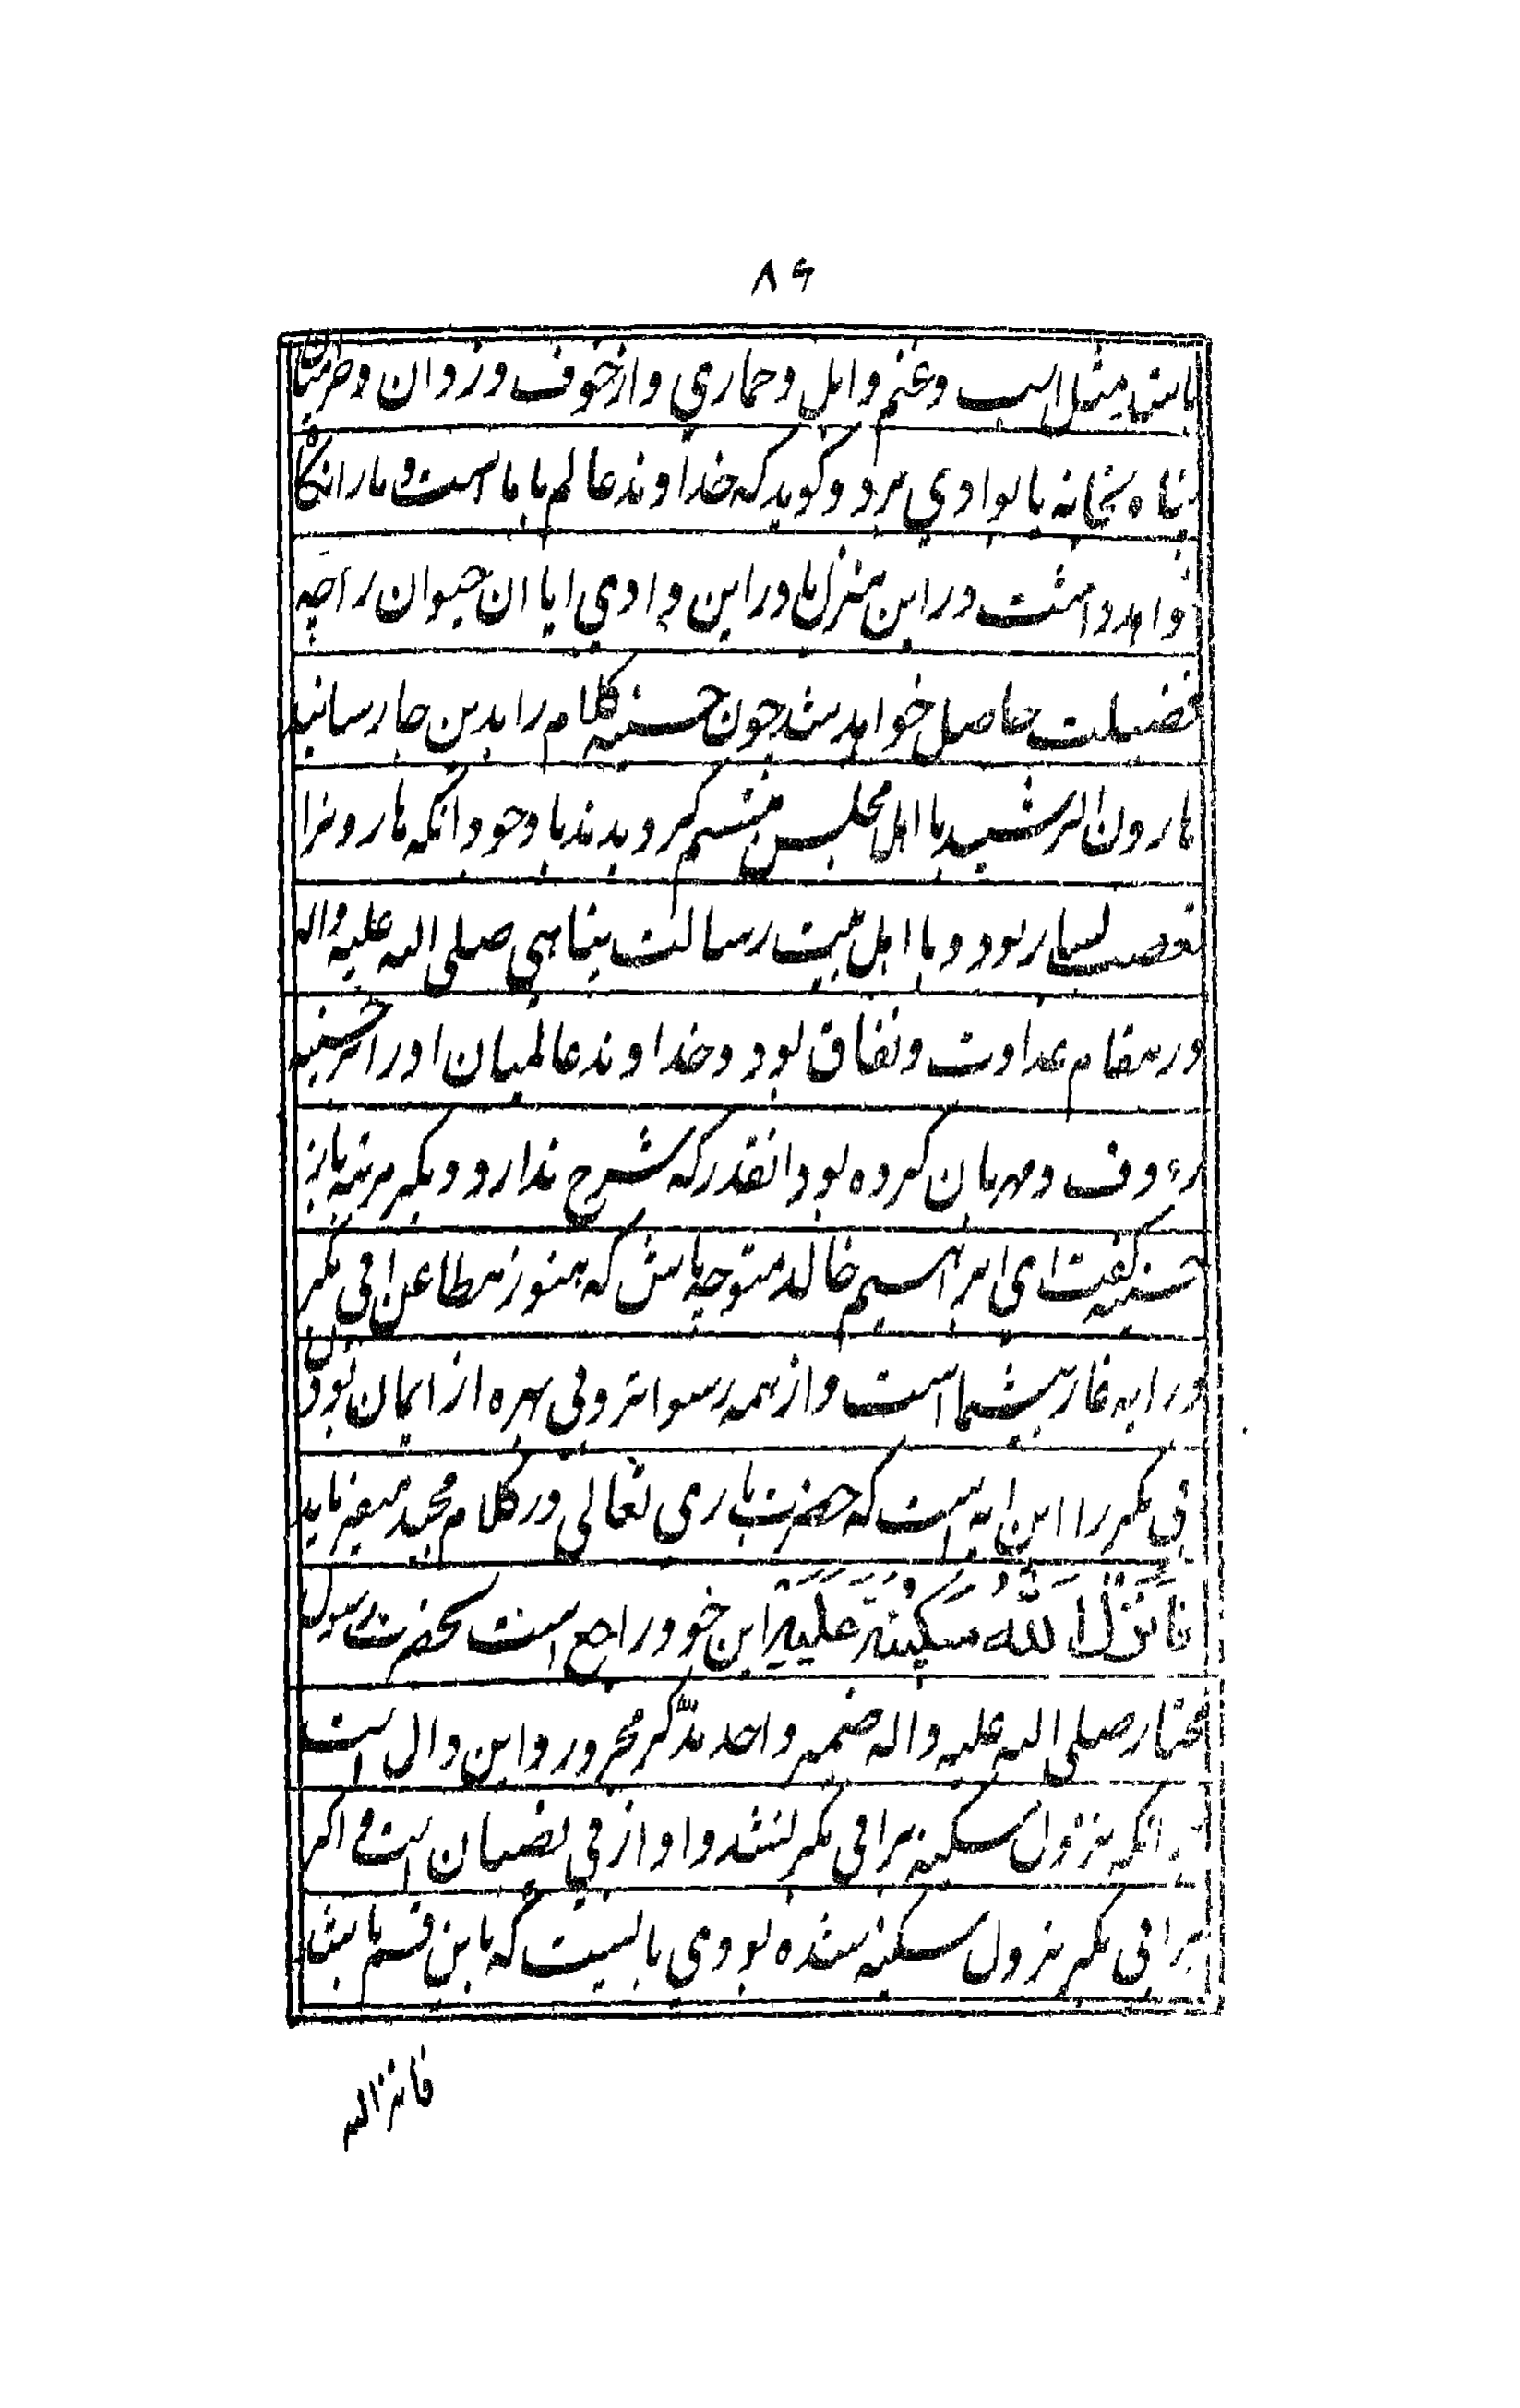 ۸۶
باشد مثل اسب و غنم و ابل و حماری و از خوف دزدان و حرمیان
پناه بخانه یا بوادی برد و کوید که خداوند عالم با ما است و ما را نکاه
خواهد داشت در این منزل یا در این وادی ایا ان حیوان را چه
فضیلت حاصل خواهد شد چون حسنیه کلام را بدین جا رسانید
هارون الرشید با اهل مجلس متبسم کردیدند با وجود انکه هارونرا
تعصب بسیار بود و با اهل بیت رسالت پناهی صلی الله علیه واله
در مقام عداوت و نفاق بود و خداوند عالمیان او را بر حسنیه
رءوف و مهربان کرده بود انقدر که شرح ندارد دیکر مرتبه باز
حسنیه کفت ای ابراهیم خالد متوجه باش که هنوز مطاعن ابی بکر
در ایه غار بیشما است و از همه رسواتر و بی بهره از ایمان بودن
ابی بکر را این ایه است که حضرت باری تعالی در کلام مجید میفرماید
فَاَنْزَلَ اللهُ سَكِينَتَهُ عَلَيْهِ این خود راجع است بحضرت رسول
مختار صلی الله علیه واله ضمیر واحد مذکر مجرور و این دال است
بر انکه نزول سکینه بر ابی بکر نشد و او از بی نصیبان است و اکر
بر ابی بکر نزول سکینه شده بودی بایست که باین قسم باشد
فانزل الله